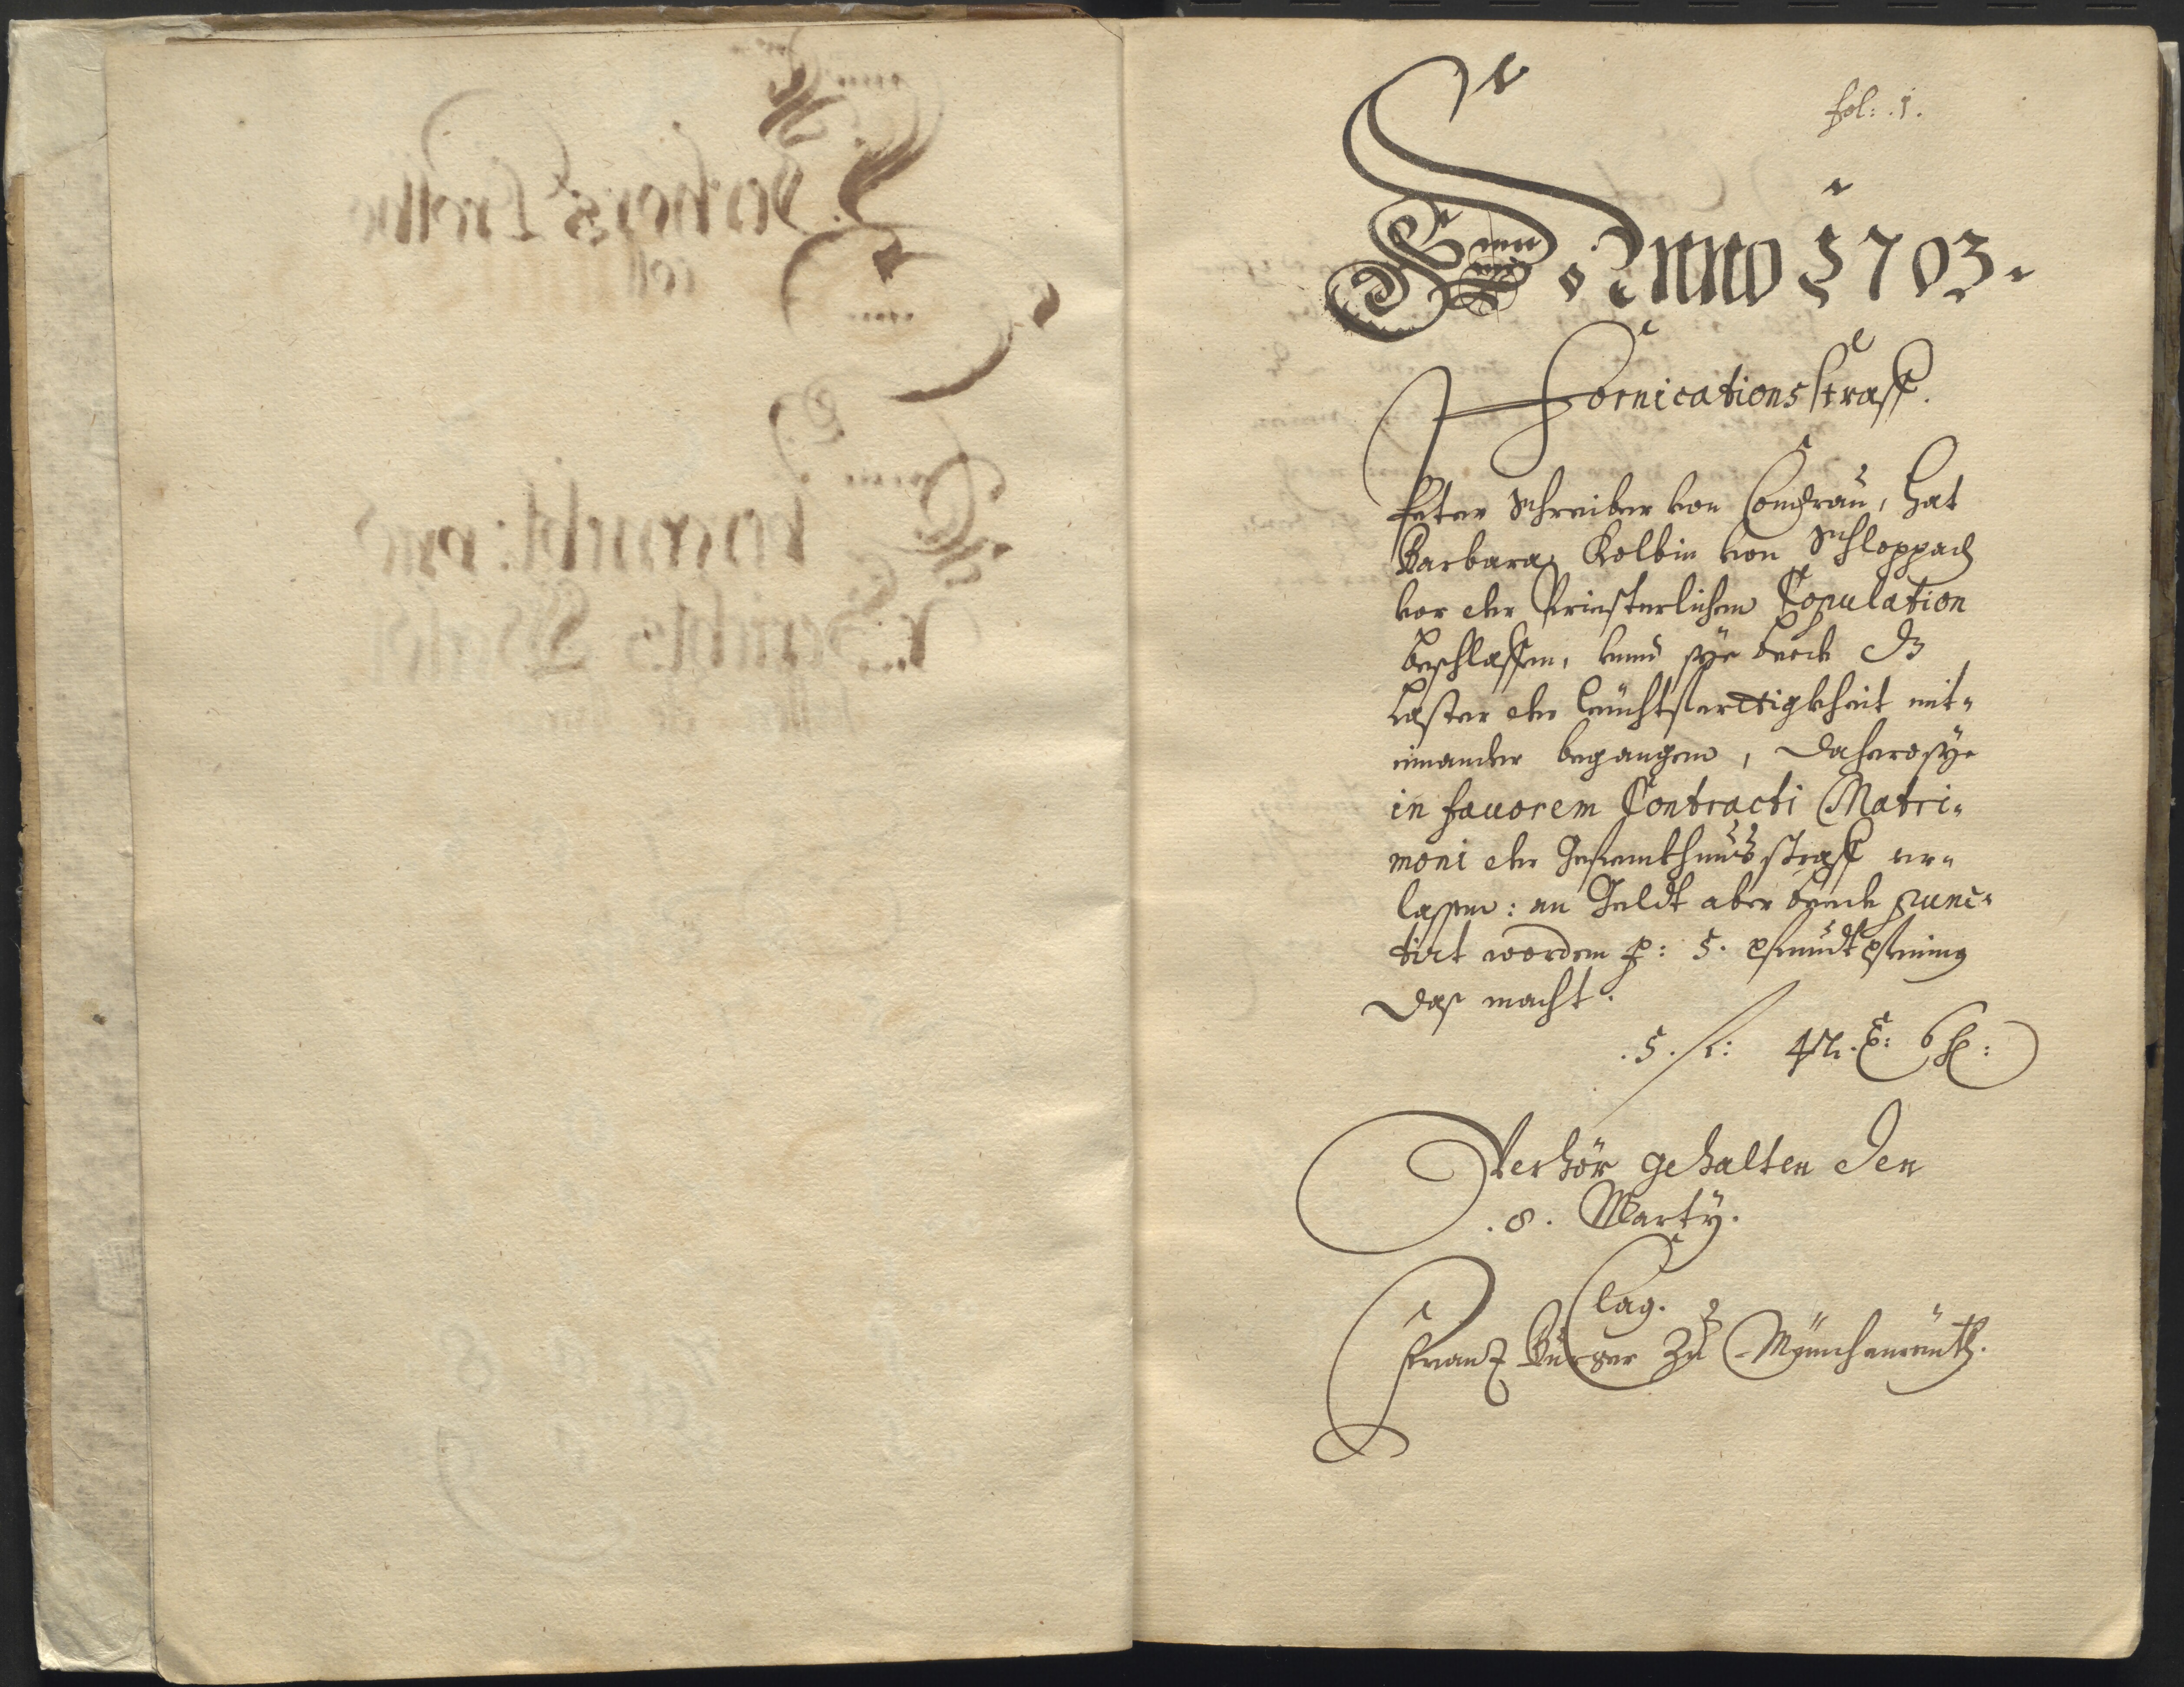 fol: 1.
Anno 1703.
Fornications straff.
Peter Schreiber von Condrau, hat
Barbara Kolbin von Schloppach
vor der Priesterlichen Copulation
beschlaffen, vnnd sÿe beede dz
Laster der Leüchtferttigkheit mit-
einander begangen, dahero sÿe
in fauorem Contracti Matri-
moni der Gefenkhnus straff er-
lassen: an Geldt aber beede punc-
tirt worden p: 5. Pfundt Pfening
das macht.
.5. fl: 42. x: 6 hl:
Verhör gehalten den
.8. Martÿ.
Clag.
Franz Burger zu Münchenreüth.